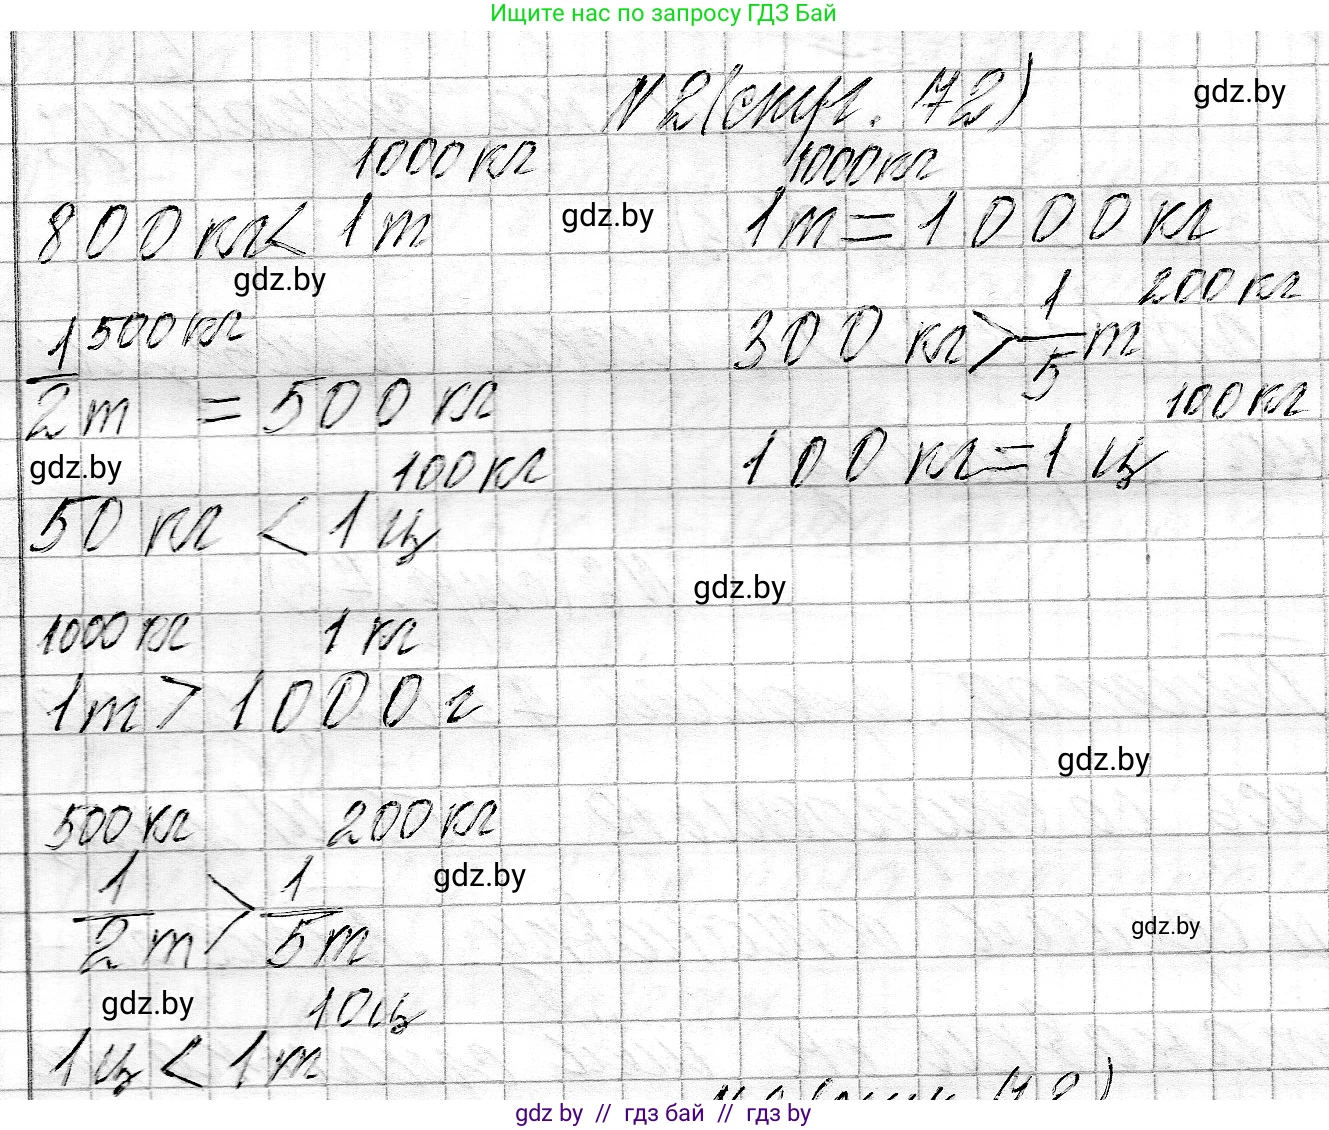 Ищите нас по запросу ГДЗ Бай
№2 (стр. 72)
gdz.by
1000 кг
800 кг < 1 т
gdz.by
1000 кг
1 т = 1000 кг
gdz.by
500 кг
1/2 т = 500 кг
200 кг
300 кг > 1/5 т
gdz.by
100 кг
50 кг < 1 ц
100 кг
100 кг = 1 ц
gdz.by
1000 кг 1 кг
1 т > 1000 г
gdz.by
500 кг 200 кг
1/2 т > 1/5 т
gdz.by
gdz.by
gdz.by
10 ц
1 ц < 1 т
gdz by // гдз бай // гдз by